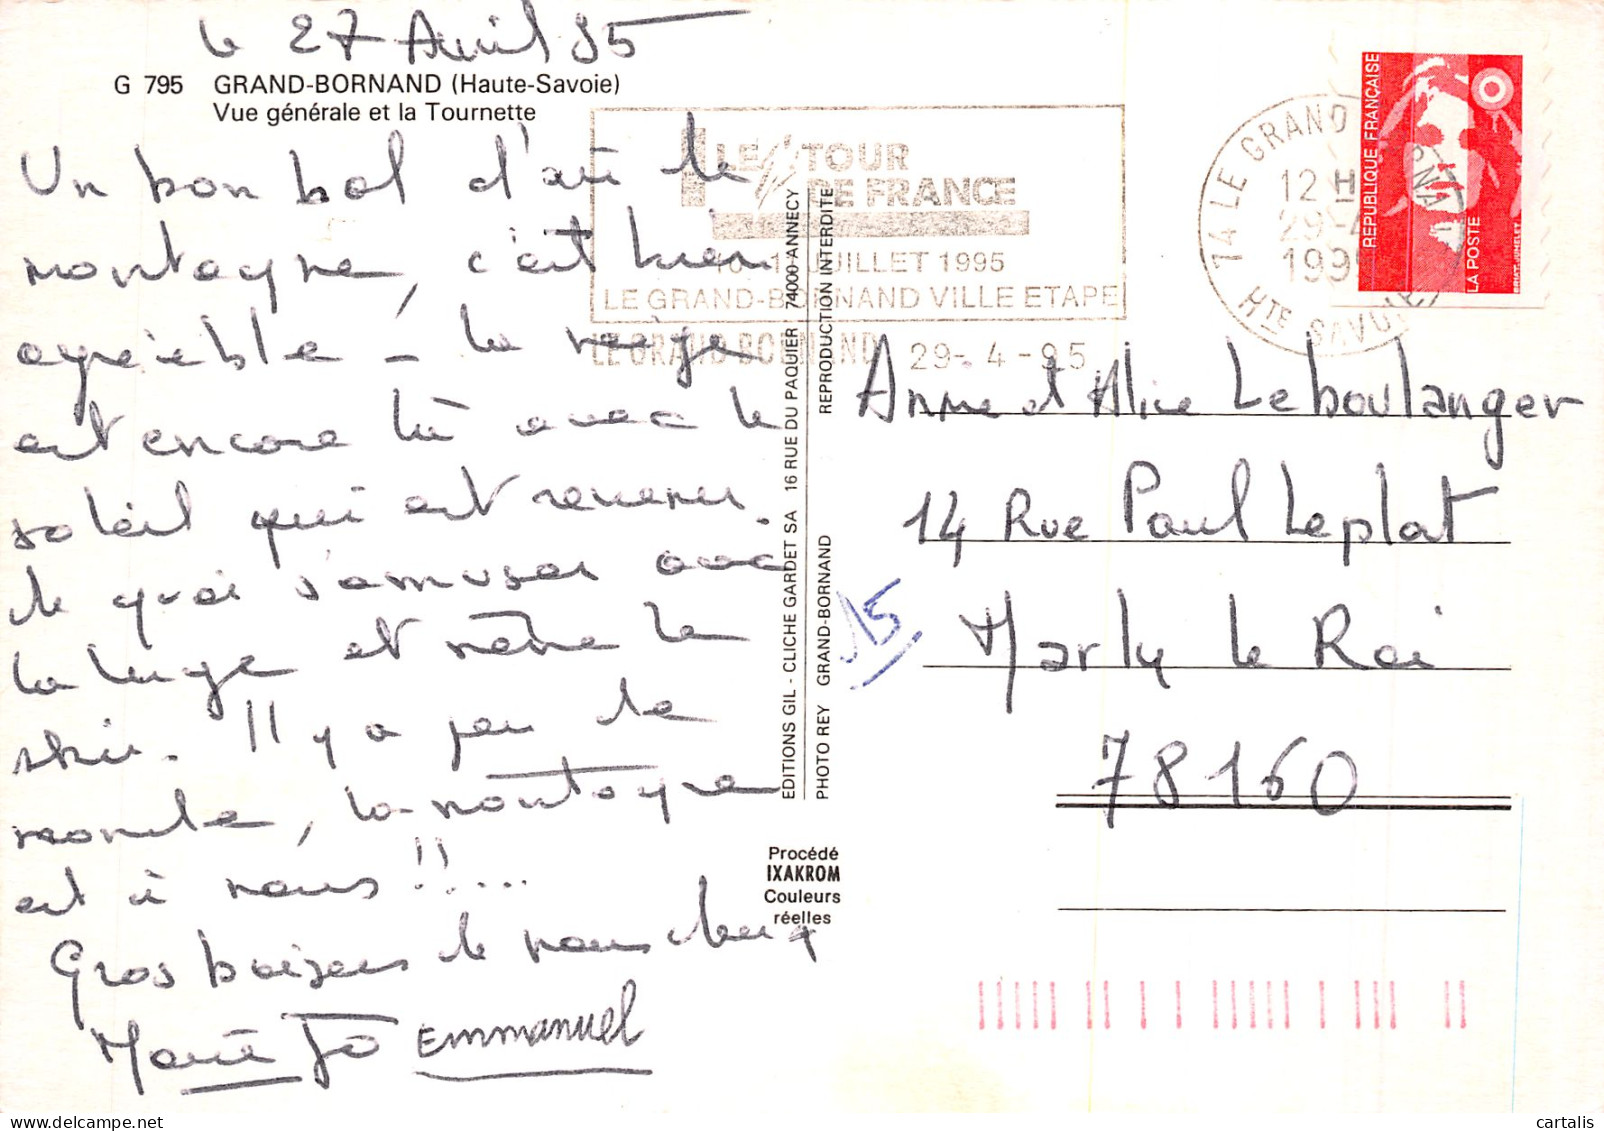 le 27 Avril 95
G 795 GRAND-BORNAND (Haute-Savoie)
Vue générale et la Tournette
Un bon bol d'air de
montagne, c'est bien
agréable - la neige
est encore là avec le
soleil qui est revenu.
de quoi s'amuser avec
la luge et même le
ski. Il y a peu de
monde, la montagne
est à nous !!....
Gros baisers de nous deux
Marie Jo Emmanuel
LE TOUR
DE FRANCE
JUILLET 1995
LE GRAND-BORNAND VILLE ETAPE
LE GRAND BORNAND 29-4-95
EDITIONS GIL - CLICHE GARDET SA 16 RUE DU PAQUIER 74000 ANNECY
PHOTO REY GRAND-BORNAND REPRODUCTION INTERDITE
Procédé
IXAKROM
Couleurs
réelles
74 LE GRAND BORNAND
12 H
29-4
1995
HTE SAVOIE
REPUBLIQUE FRANÇAISE
LA POSTE
Anne et Alice Leboulanger
14 Rue Paul Leplat
15
Marly le Roi
78160
cartalis.com